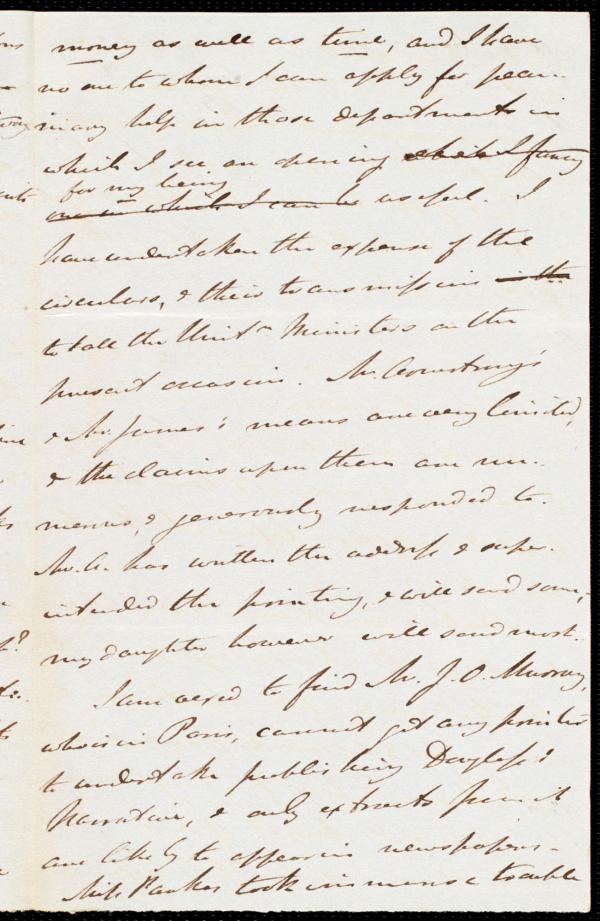 money as well as time, and I have
no one to whom I can apply for pecu-
niary help in those departments in
which I see an opening which I fancy
for my being
one in which I can be useful. I
have undertaken the expense of the
circulars, & their transmission in the
to all the Unitn Ministers on the
present occasion. Mr. Armstrong's
& Mr. James's means are very limited,
& the claims upon them are nu-
merous, & generously responded to.
Mr. A. has written the address & supe-
intended the printing, & will send some,
my daughter however will send most.
I am vexed to find Mr. J. O. Murray,
who is in Paris, cannot get any printer
to undertake publishing Douglass's
Narrative, & only extracts from it
are likely to appear in newspapers.
Miss Parkes took immense trouble